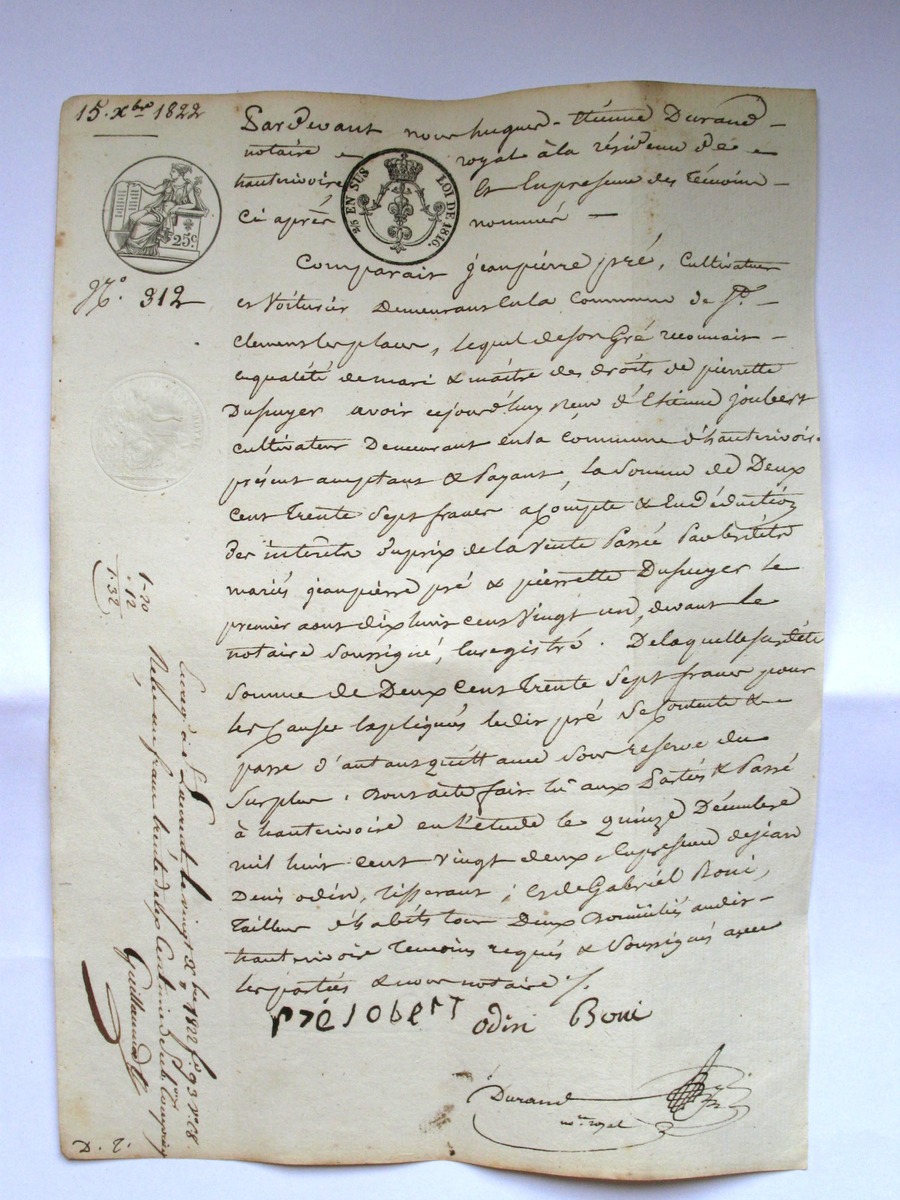 15. Xbre 1822
Pardevant nous hugues - Etienne Durand -
notaire - royal à la résidence de -
hauterivoire - Et En presence des Témoins -
Ci après nommés -
2/5 EN SUS LOI DE 1816.
25c
No. 312
Comparait jeanpierre pré, Cultivateur
et Voiturier Demeurant En la Commune de St. -
Clement les places, lequel de son Gré reconnait -
en qualité de mari & maitre des droits de pierrette
Dupuyer avoir cejourd'huy reçu d'Etienne joubert
cultivateur Demeurant en la Commune d'hauterivoire
présent acceptant & Payant, la Somme de Deux
Cent Trente Sept francs a Compte & En déduction
des intérêts du prix de la Vente Passée Par les dits
mariés jeanpierre pré & pierrette Dupuyer le
premier aout dix huit cent Vingt un, devant le
notaire Soussigné, Enregistré. De laquelle susdite
Somme de Deux Cent Trente Sept francs pour
les Causes Expliquées ledit pré Se Contente &
passe d'autant quittance Sous réserve du
Surplus. Dont acte fait lu aux Parties & Passé
à hauterivoire en l'étude le quinze Décembre
mil huit cent vingt deux, En presence de jean
Denis odin, Tisserant, & de Gabriel Boni,
Tailleur d'habits tous Deux Domiciliés audit -
hauterivoire Temoins requis & Soussignés avec
les parties & nous notaire ./.
pré joberT odin Boni
Durand
no.re royal
1-20
. 12
1.32
Enreg.é à St Laurent le vingt Xbre 1822 fo. 93 Vo. C8
Reçu un franc trente deux Centimes Subvon Comprise
Guillaume
D. T.